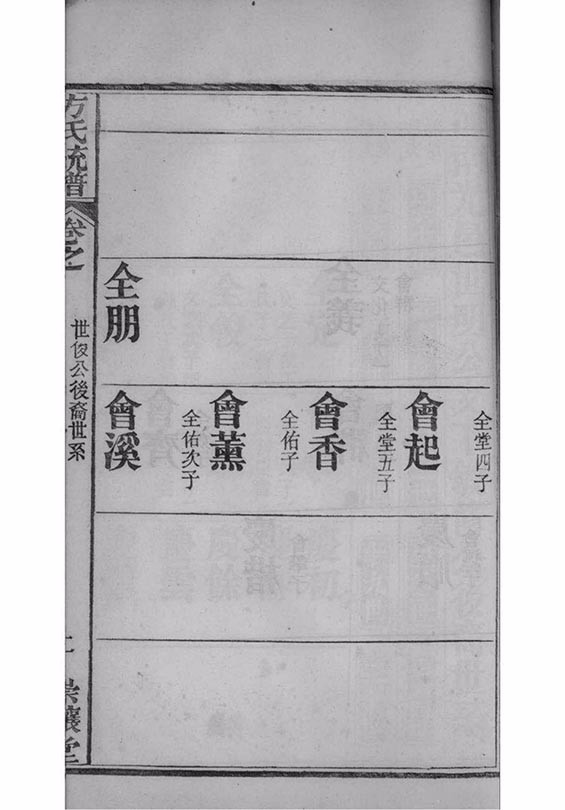 全堂四子
會起
全堂五子
會香
全佑子
會薰
全佑次子
全朋
會溪
方氏統譜
卷之
世俊公後裔世系
崇讓堂